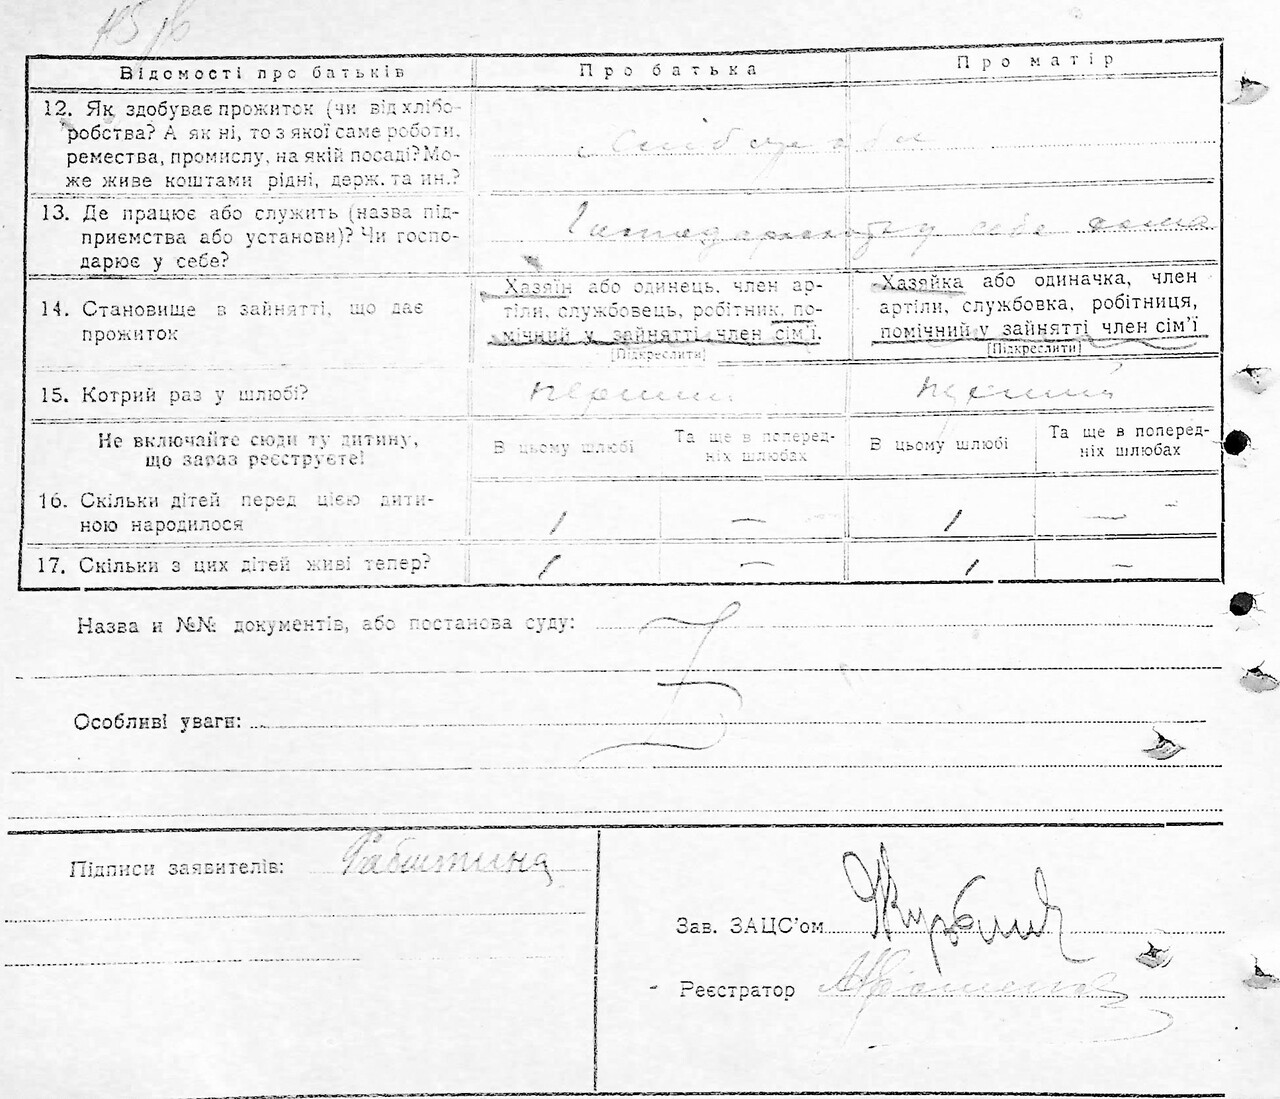 Відомості про батьків
Про батька
Про матір
12. Як здобуває прожиток (чи від хлібо-
робства? А як ні, то з якої саме роботи,
ремества, промислу, на якій посаді? Мо-
же живе коштами рідні, держ. та ин.?
13. Де працює або служить (назва під-
приємства або установи)? Чи госпо-
дарює у себе?
у себе
14. Становище в зайнятті, що дає
прожиток
Хазяїн або одинець, член ар-
тіли, службовець, робітник, по-
мічний у зайнятті член сім'ї.
[Підкреслити]
Хазяйка або одиначка, член
артіли, службовка, робітниця,
помічний у зайнятті член сім'ї
[Підкреслити]
15. Котрий раз у шлюбі?
перший
перший
Не включайте сюди ту дитину,
що зараз реєструєте!
В цьому шлюбі
Та ще в поперед-
ніх шлюбах
В цьому шлюбі
Та ще в поперед-
ніх шлюбах
16. Скільки дітей перед цією дити-
ною народилося
1
—
1
—
17. Скільки з цих дітей живі тепер?
1
—
1
—
Назва и №№ документів, або постанова суду:
Особливі уваги:
Підписи заявителів:
Зав. ЗАЦС'ом
Реєстратор